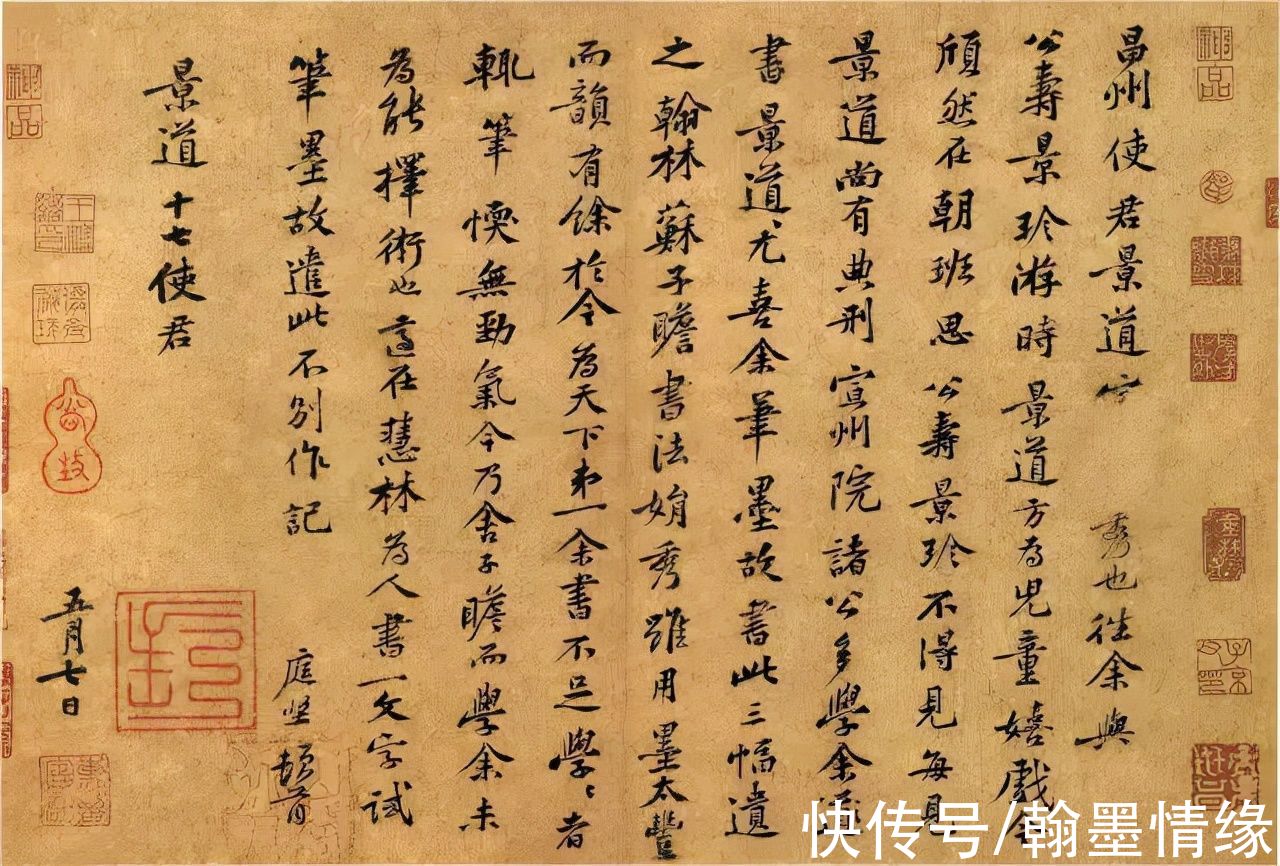 昌州使君景道 秀也往余與
公壽景珍游時景道方為兒童嬉戲今
頎然在朝班思公壽景珍不得見每見
景道尚有典刑宣州院諸公多學余
書景道尤喜余筆墨故書此三幅遺
之翰林蘇子瞻書法娟秀雖用墨太豐
而韻有餘於今為天下第一余書不足學〻者
輒筆愞無勁氣今乃舍子瞻而學余未
為能擇術也適在慧林為人書一文字試
筆墨故遣此不別作記
庭堅頓首
景道十七使君
五月七日
神品
神品
快传号/翰墨情缘